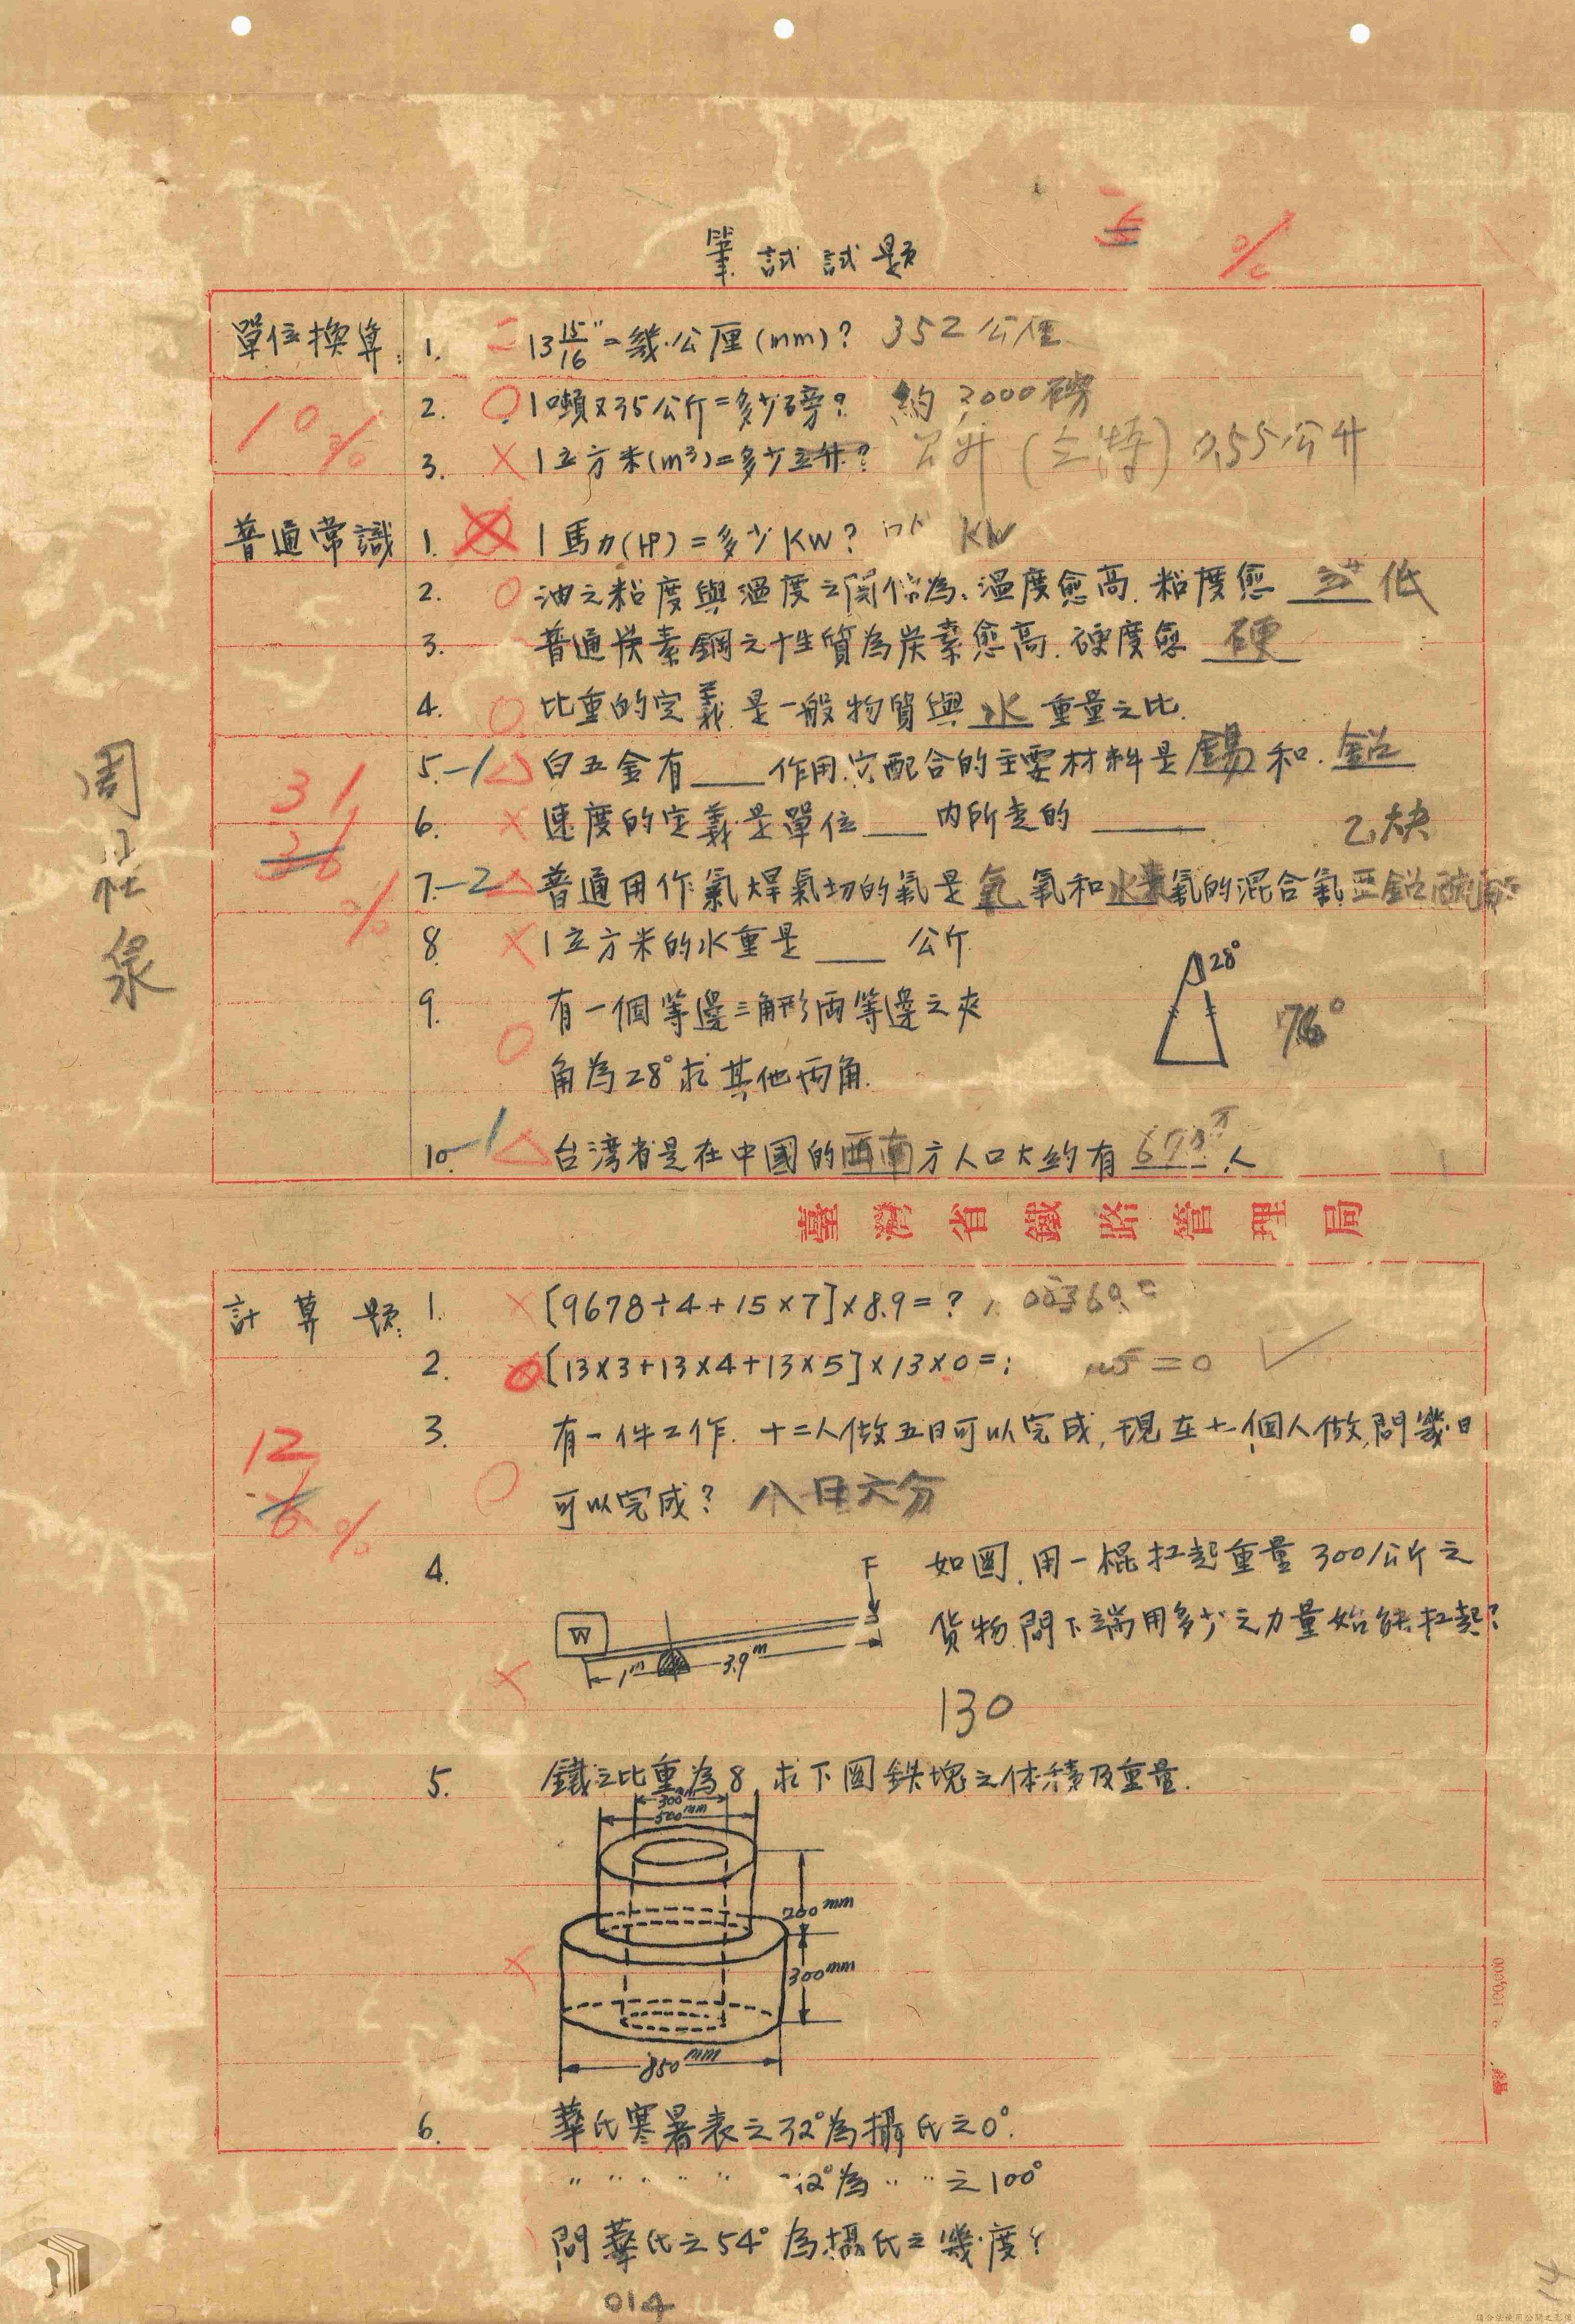 筆試試題
%
單位換算: 1. 13 15/16" = 幾公厘(mm)? 352公厘
10% 2. 1噸又35公斤=多少磅? 約 2000磅
3. 1立方米(m³)=多少立升? 公升(立特) 0.55公升
普通常識 1. 1馬力(HP)=多少KW? KW
2. 油之粘度與溫度之関係為:溫度愈高.粘度愈 低
3. 普通炭素鋼之性質為炭素愈高.硬度愈 硬
4. 比重的定義是一般物質與水重量之比.
5. -1 白五金有___作用.它配合的主要材料是錫和.鉛
31 36 % 6. 速度的定義是單位___内所走的______
乙炔
7. -2 普通用作氣焊氣切的氣是氧氣和水素氣的混合氣
8. 1立方米的水重是___公斤
28°
9. 有一個等邊三角形両等邊之夾
76°
角為28°求其他両角.
10. -1 台湾省是在中國的西南方人口大約有 670万 人
周 泉
臺灣省鐵路管理局
計算題: 1. [9678÷4+15×7]×8.9=?
2. [13×3+13×4+13×5]×13×0=: =0
3. 有一件工作.十二人做五日可以完成,現在七個人做,問幾日
12 %
可以完成? 八日六分
4. 如圖.用一棍扛起重量300公斤之
F
貨物.問下端用多少之力量始能扛起?
W
1m 3.9m
130
5. 鐵之比重為8,求下圖鉄塊之体積及重量.
300
500mm
200mm
300mm
850mm
6. 華氏寒暑表之32°為攝氏之0°.
〃 〃 〃 〃 〃 212°為 〃 〃 之100°
問華氏之54°為攝氏之幾度?
014
14